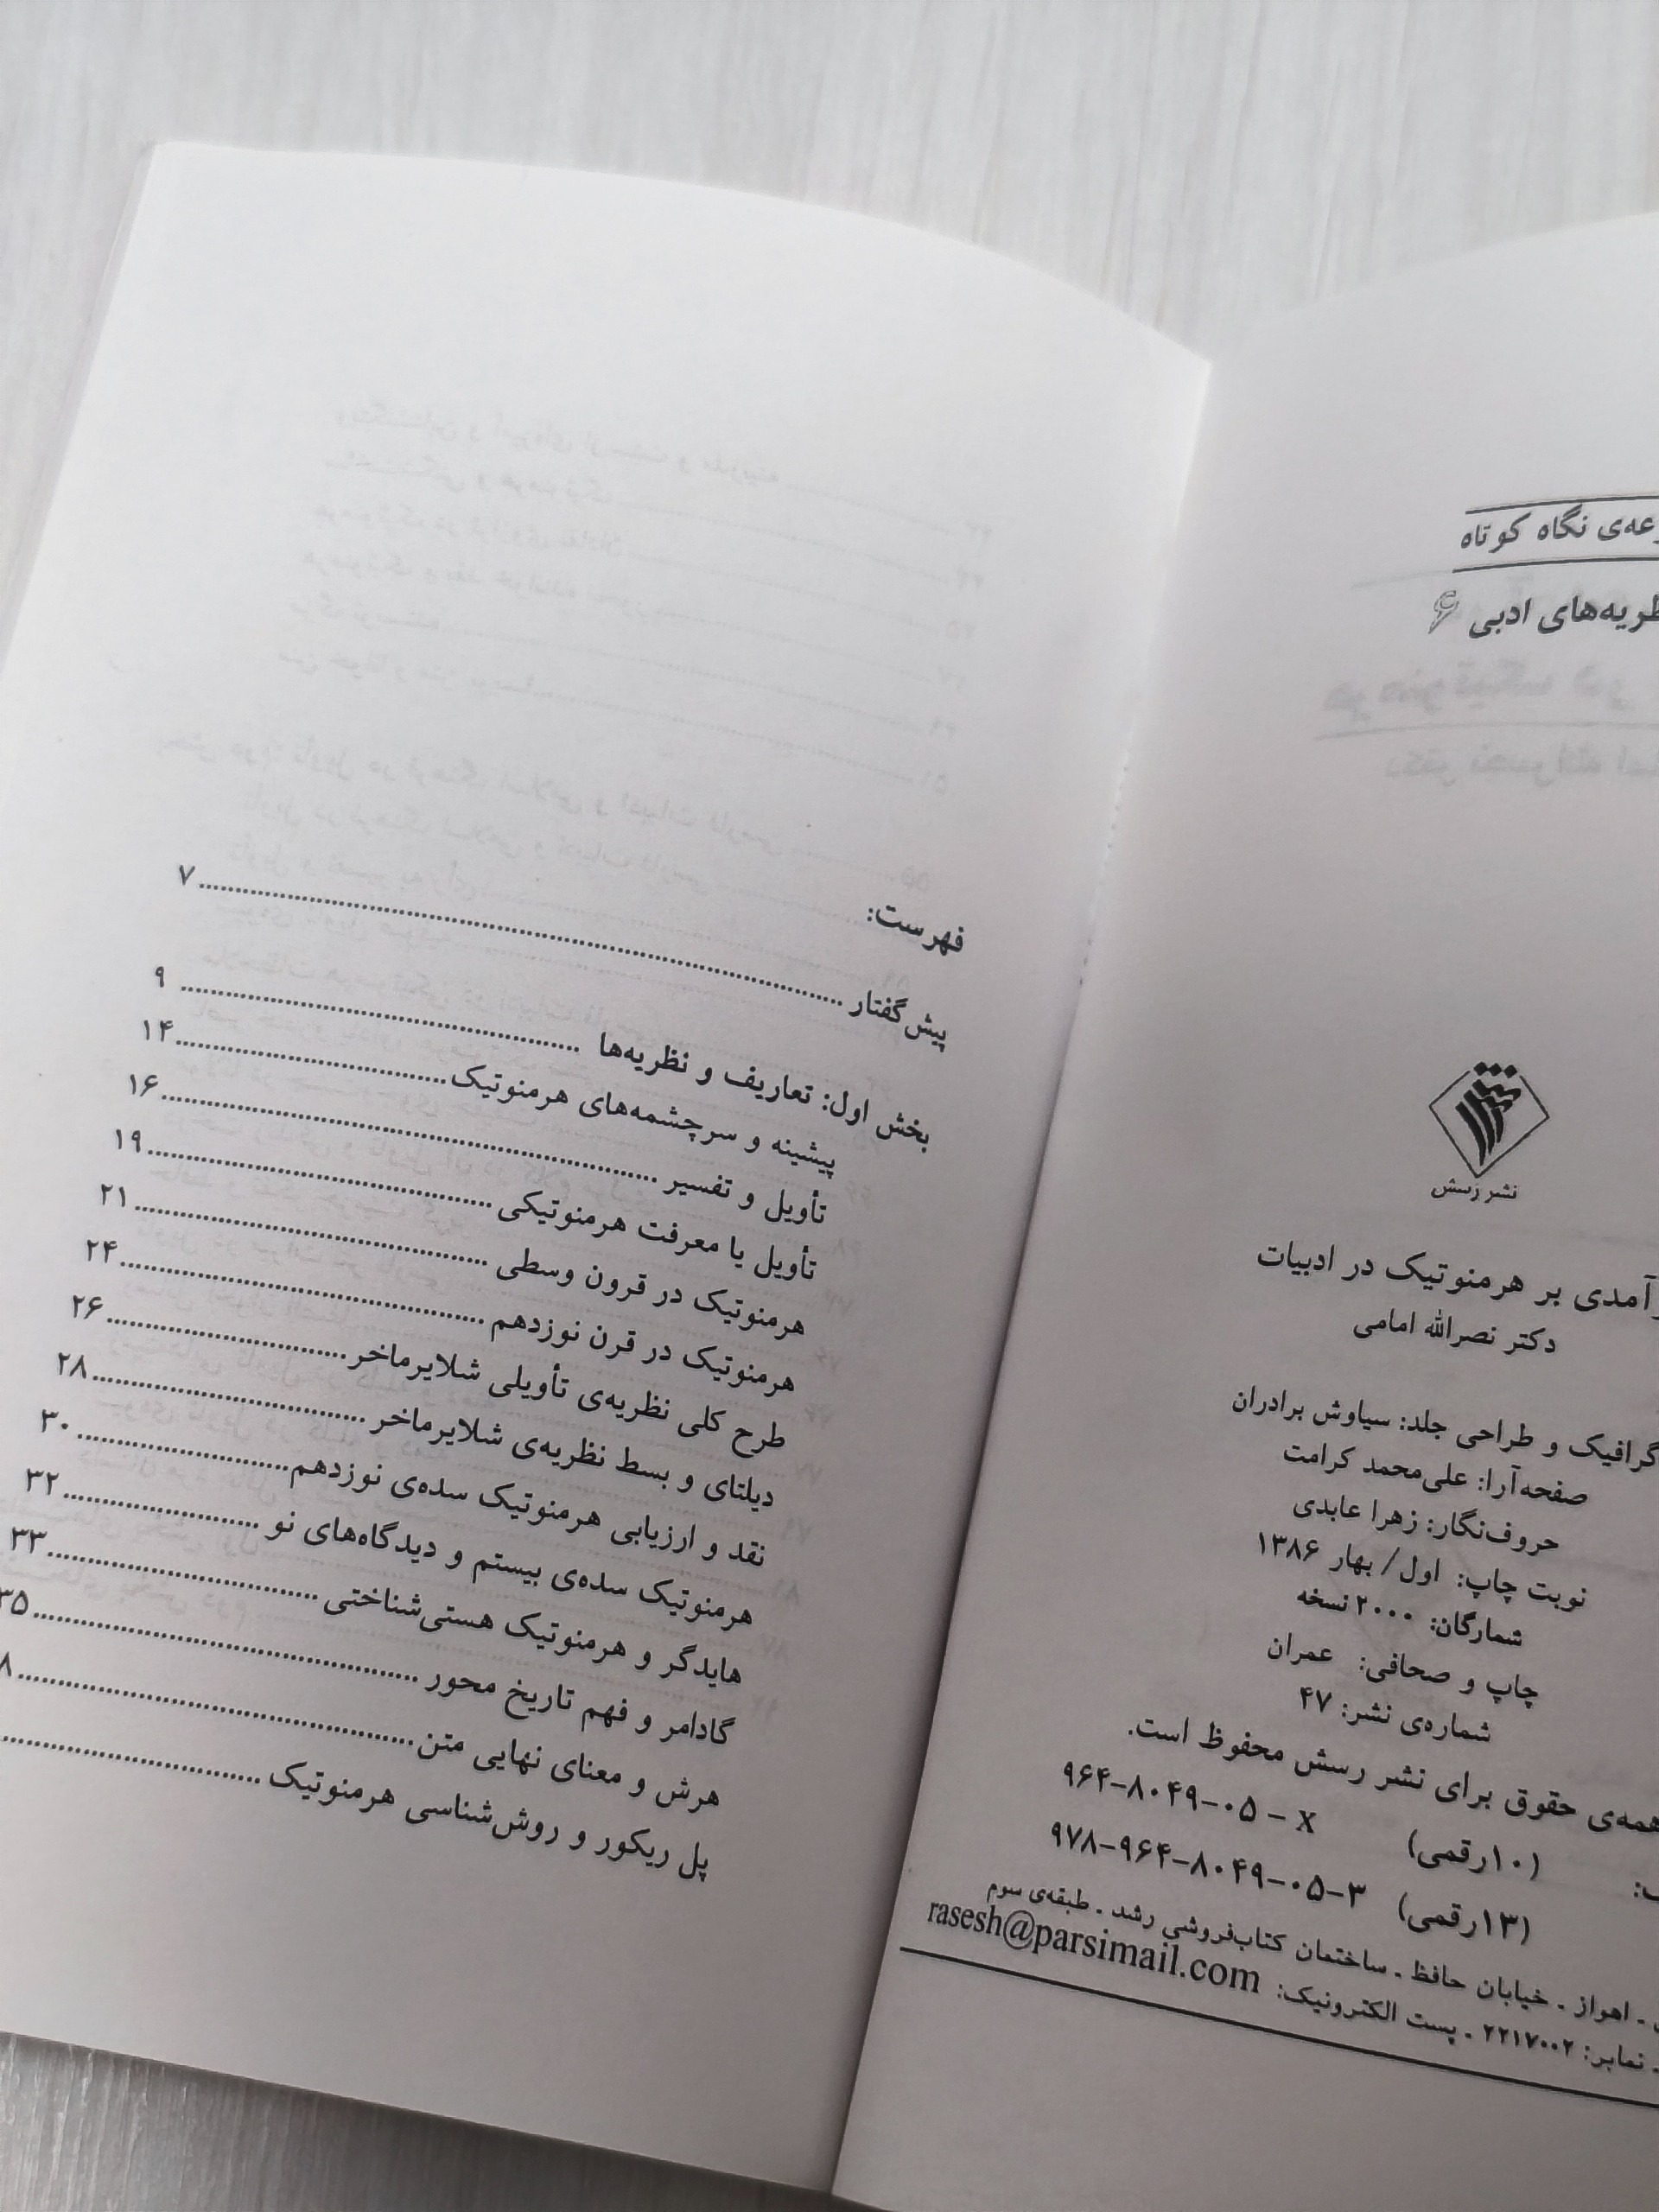 نگاه کوتاه
های ادبی ۶
نشر رسش
آمدی بر هرمنوتیک در ادبیات
دکتر نصرالله امامی
گرافیک و طراحی جلد: سیاوش برادران
صفحه‌آرا: علی‌محمد کرامت
حروف‌نگار: زهرا عابدی
نوبت چاپ: اول/ بهار ۱۳۸۶
شمارگان: ۲۰۰۰ نسخه
چاپ و صحافی: عمران
شماره‌ی نشر: ۴۷
همه‌ی حقوق برای نشر رسش محفوظ است.
(۱۰رقمی) ۹۶۴-۸۰۴۹-۰۵ - X
(۱۳رقمی) ۹۷۸-۹۶۴-۸۰۴۹-۰۵-۳
اهواز ـ خیابان حافظ ـ ساختمان کتاب‌فروشی رشد ـ طبقه‌ی سوم
نمابر: ۲۲۱۷۰۰۲ ـ پست الکترونیک: rasesh@parsimail.com
فهرست:
پیش‌گفتار ........ ۷
بخش اول: تعاریف و نظریه‌ها ........ ۹
پیشینه و سرچشمه‌های هرمنوتیک ........ ۱۴
تأویل و تفسیر ........ ۱۶
تأویل یا معرفت هرمنوتیکی ........ ۱۹
هرمنوتیک در قرون وسطی ........ ۲۱
هرمنوتیک در قرن نوزدهم ........ ۲۴
طرح کلی نظریه‌ی تأویلی شلایرماخر ........ ۲۶
دیلتای و بسط نظریه‌ی شلایرماخر ........ ۲۸
نقد و ارزیابی هرمنوتیک سده‌ی نوزدهم ........ ۳۰
هرمنوتیک سده‌ی بیستم و دیدگاه‌های نو ........ ۳۲
هایدگر و هرمنوتیک هستی‌شناختی ........ ۳۳
گادامر و فهم تاریخ محور ........ ۳۵
هرش و معنای نهایی متن ........ ۸
پل ریکور و روش‌شناسی هرمنوتیک ........